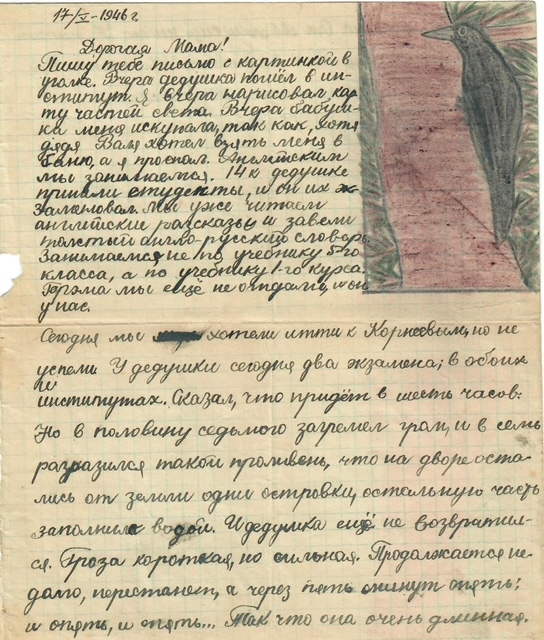 17/V-1946 г.
Дорогая Мама!
Пишу тебе письмо с картинкой в
уголке. Вчера дедушка пошёл в ин-
ститут. Я вчера нарисовал кар
ту частей света. Вчера бабуш-
ка меня искупала, так как, хотя
дядя Валя хотел взять меня в
баню, а я проспал. Английским
мы занимаемся. 14 к дедушке
пришли студенты, и он их эк-
заменовал. Мы уже читаем
английские рассказы и завели
толстый англо-русский словарь.
Занимаемся не по учебнику 5-го
класса, а по учебнику 1-го курса.
мы ещё не отдали, и он
у нас.
Сегодня мы хотели итти к Корнеевым, но не
успели. У дедушки сегодня два экзамена; в обоих
институтах. Сказал, что придёт в шесть часов.
Но в половину седьмого загремел гром, и в семь
разразился такой проливень, что на дворе оста-
лись от земли одни островки, остальную часть
заполнила водой. И дедушка ещё не возвратил-
ся. Гроза короткая, но сильная. Продолжается не-
долго, перестанет, а через пять минут опять!
и опять, и опять... Так что она очень длинная.